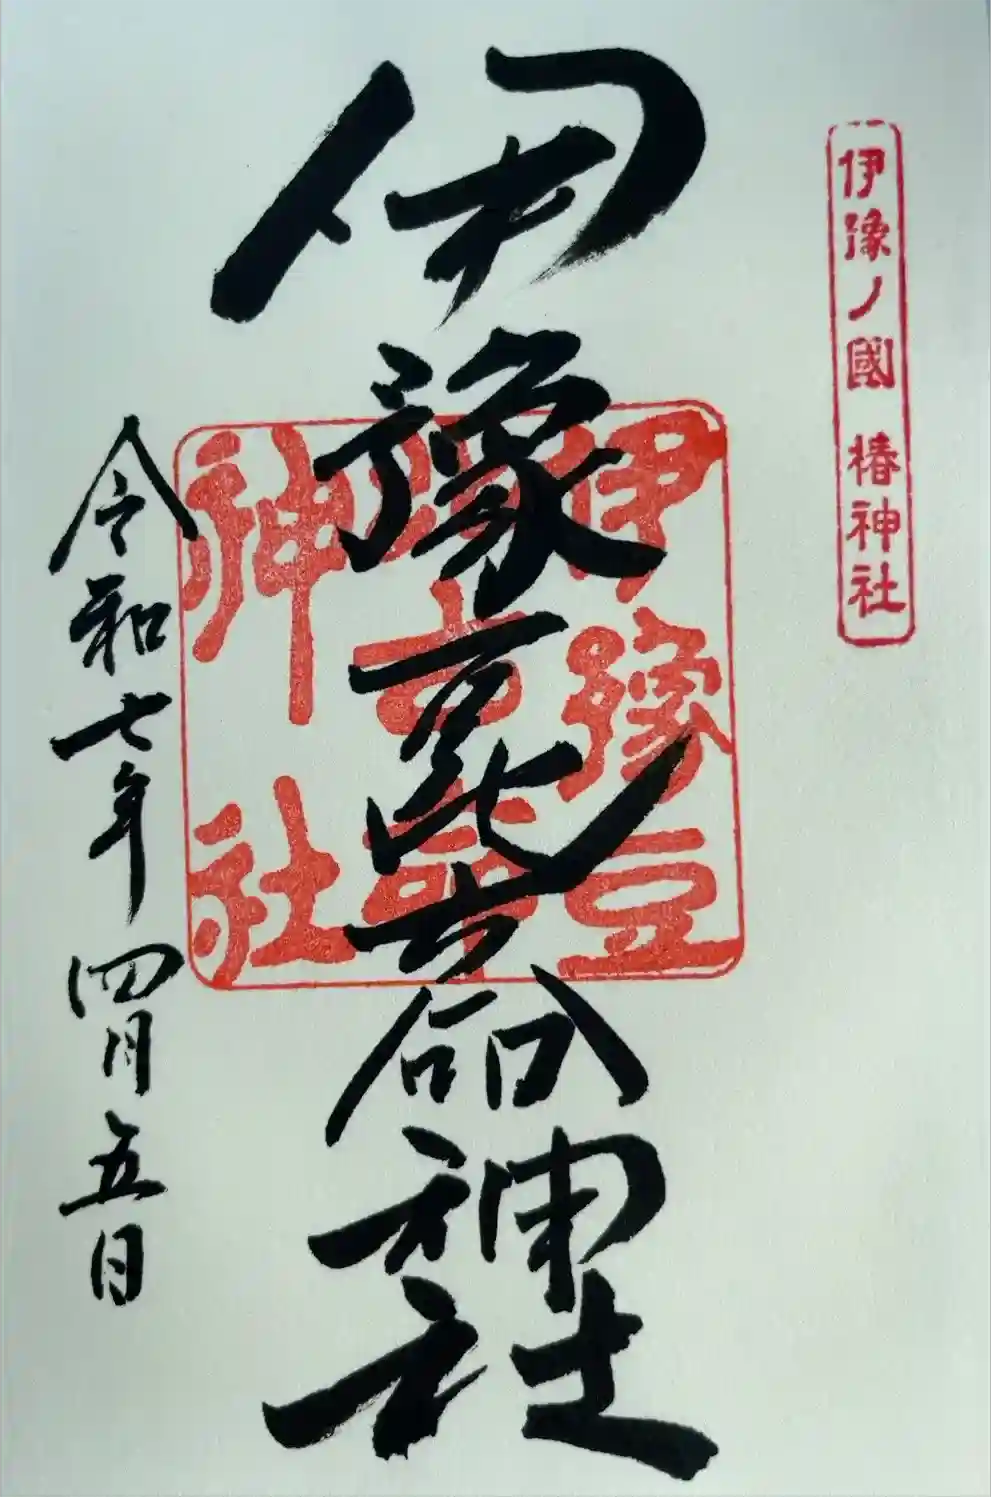 伊豫ノ國 椿神社
伊豫豆比古命神社
伊豫豆
比古命
神社
令和七年四月五日